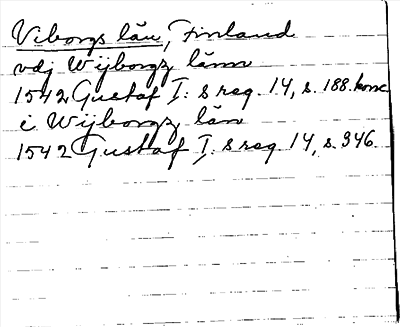 Viborgs län, Finland
vdj Wijborgz länn
1542 Gustaf I: s reg. 14, s. 188. konc
i Wijborgz län
1542 Gustaf I: s reg. 14, s. 346.